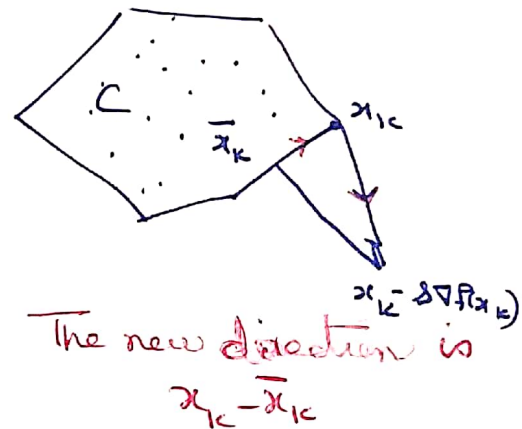 C
x_k
x̄_k
x_k - s∇f(x_k)
The new direction is
x_k - x̄_k